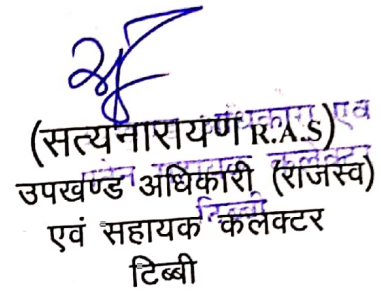 (सत्यनारायण R.A.S)
उपखण्ड अधिकारी (राजस्व)
एवं सहायक कलेक्टर
टिब्बी